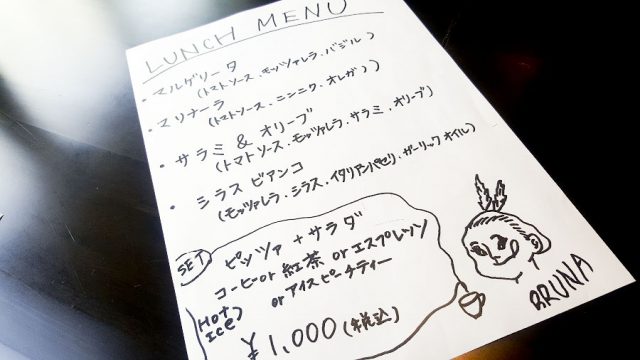 LUNCH MENU
・マルゲリータ
(トマトソース・モッツァレラ・バジル)
・マリナーラ
(トマトソース・ニンニク・オレガノ)
・サラミ & オリーブ
(トマトソース・モッツァレラ・サラミ・オリーブ)
・シラス ビアンコ
(モッツァレラ・シラス・イタリアンパセリ・ガーリックオイル)
SET
ピッツァ + サラダ
コーヒー or 紅茶 or エスプレッソ
or アイスピーチティー
(Hot
Ice)
¥1,000 (税込)
BRUNA